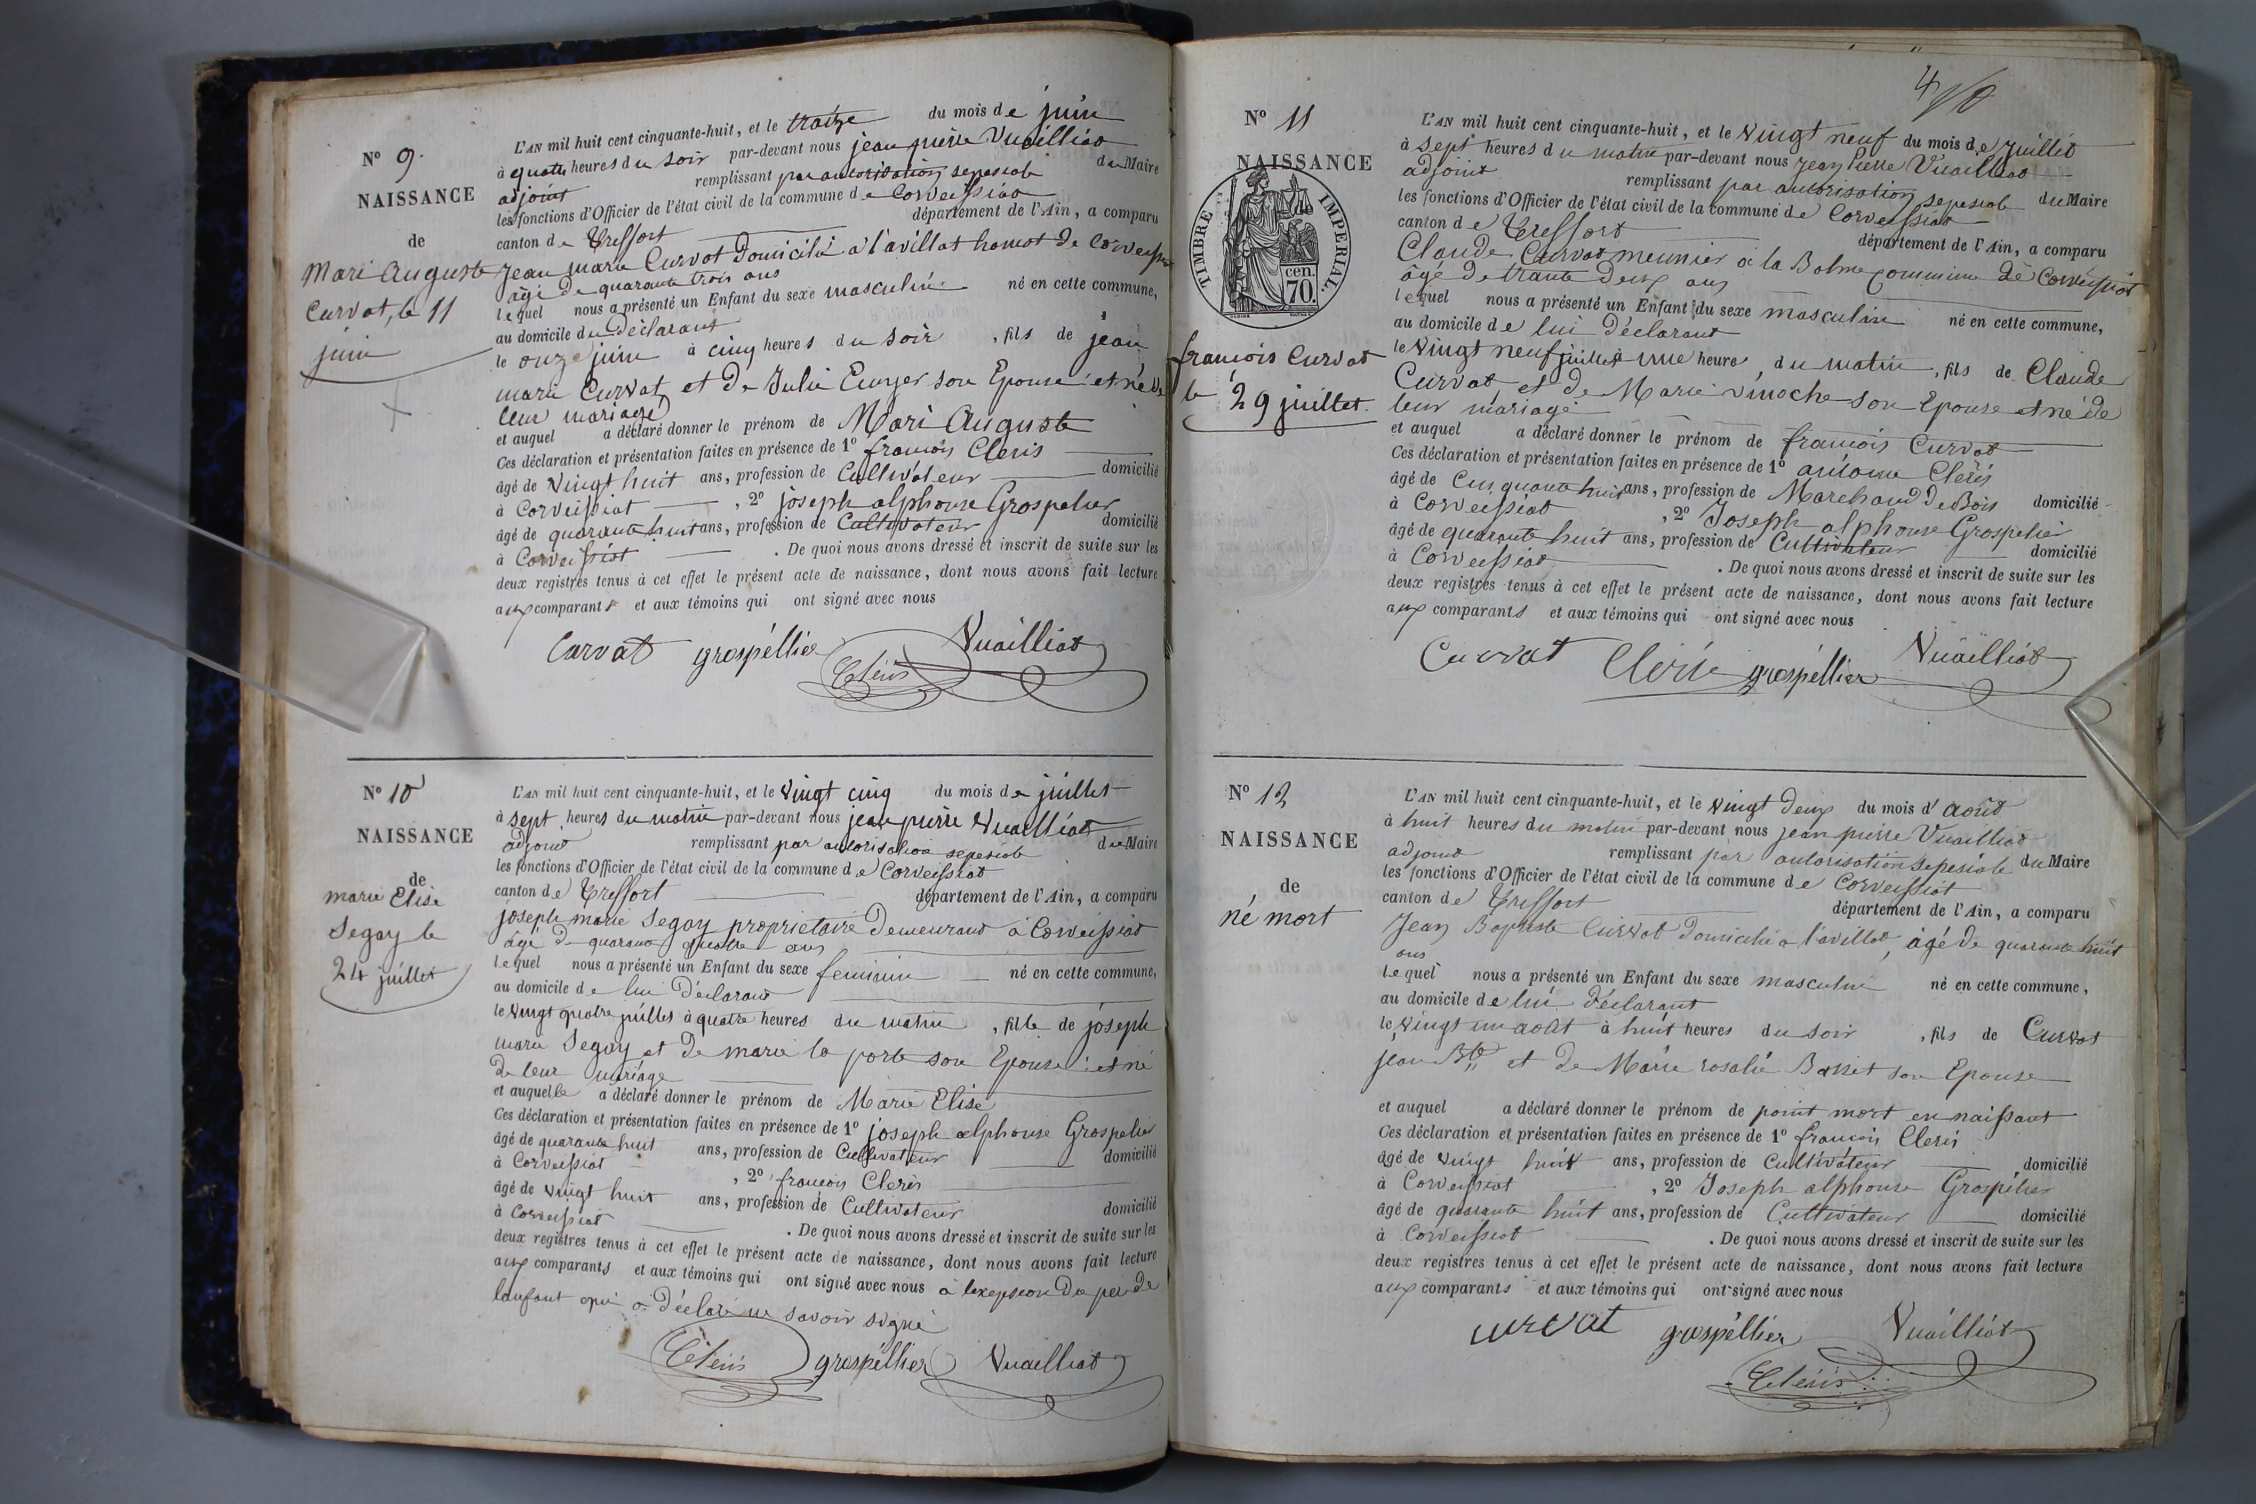 N° 9.
NAISSANCE
de
Mari Auguste
Curvat, le 11
juin
L'AN mil huit cent cinquante-huit, et le traize du mois de juin
à quatre heures du soir par-devant nous jean pierre Vuailliat
adjoint remplissant par autorisation du Maire
les fonctions d'Officier de l'état civil de la commune de Corveissiat
canton de Treffort département de l'Ain, a comparu
Jean marie Curvat Domicilié a l'avillat hamot de Corveissiat
âgé de quarante trois ans
lequel nous a présenté un Enfant du sexe masculin né en cette commune,
au domicile du Déclarant
le onze juin à cinq heures du soir, fils de jean
marie Curvat et de Julie son Epouse et né de
leur mariage
et auquel a déclaré donner le prénom de Mari Auguste
Ces déclaration et présentation faites en présence de 1° francois Cleris
âgé de Vingt huit ans, profession de Cultivateur domicilié
à Corveissiat, 2° joseph alphonse Grospelier
âgé de quarante huit ans, profession de Cultivateur domicilié
à Corveissiat. De quoi nous avons dressé et inscrit de suite sur les
deux registres tenus à cet effet le présent acte de naissance, dont nous avons fait lecture
aux comparants et aux témoins qui ont signé avec nous
Curvat grospéllier Cléris Vuailliat
N° 10
NAISSANCE
de
marie Elise
Segay le
24 juillet
L'AN mil huit cent cinquante-huit, et le Vingt cinq du mois de juillet
à sept heures du matin par-devant nous jean pierre Vuailliat
adjoint remplissant par autorisation du Maire
les fonctions d'Officier de l'état civil de la commune de Corveissiat
canton de Treffort département de l'Ain, a comparu
joseph marie Segay proprietaire Demeurant a Corveissiat
âgé de quarante quatre ans
lequel nous a présenté un Enfant du sexe feminin né en cette commune,
au domicile de lui Déclarant
le Vingt quatre juillet à quatre heures du matin, fille de joseph
marie Segay et de marie la porte son Epouse et né
de leur mariage
et auquelle a déclaré donner le prénom de Marie Elise
Ces déclaration et présentation faites en présence de 1° joseph alphonse Grospelier
âgé de quarante huit ans, profession de Cultivateur domicilié
à Corveissiat, 2° francois Cleris
âgé de Vingt huit ans, profession de Cultivateur domicilié
à Corveissiat. De quoi nous avons dressé et inscrit de suite sur les
deux registres tenus à cet effet le présent acte de naissance, dont nous avons fait lecture
aux comparants et aux témoins qui ont signé avec nous a lexepsion du per de
lanfant qui a Déclaré ne savoir signé
Cléris grospéllier Vuailliat
4
N° 11
NAISSANCE
TIMBRE IMPERIAL.
70. cen.
francois Curvat
le 29 juillet.
L'AN mil huit cent cinquante-huit, et le Vingt neuf du mois de juillet
à sept heures du matin par-devant nous Jean Pierre Vuailliat
adjoint remplissant par autorisation du Maire
les fonctions d'Officier de l'état civil de la commune de Corveissiat
canton de Treffort département de l'Ain, a comparu
Claude Curvat meunier a la Balme commune de Corveissiat
âgé de trante deux ans
lequel nous a présenté un Enfant du sexe masculin né en cette commune,
au domicile de lui Déclarant
le Vingt neuf juillet à une heure, du matin, fils de Claude
Curvat et de Marie son Epouse et né de
leur mariage
et auquel a déclaré donner le prénom de francois Curvat
Ces déclaration et présentation faites en présence de 1° antoine Cleris
âgé de Cinquante huit ans, profession de Marchand de Bois domicilié
à Corveissiat, 2° Joseph alphonse Grospelier
âgé de quarante huit ans, profession de Cultivateur domicilié
à Corveissiat. De quoi nous avons dressé et inscrit de suite sur les
deux registres tenus à cet effet le présent acte de naissance, dont nous avons fait lecture
aux comparants et aux témoins qui ont signé avec nous
Curvat Cleris grospéllier Vuailliat
N° 12
NAISSANCE
de
né mort
L'AN mil huit cent cinquante-huit, et le Vingt deux du mois d'août
à huit heures du matin par-devant nous jean pierre Vuailliat
adjoint remplissant par autorisation du Maire
les fonctions d'Officier de l'état civil de la commune de Corveissiat
canton de Treffort département de l'Ain, a comparu
Jean Baptiste Curvat Domicilié a l'avillat, âgé de quarante huit
ans
lequel nous a présenté un Enfant du sexe masculin né en cette commune,
au domicile de lui déclarant
le Vingt un août à huit heures du soir, fils de Curvat
jean Bte et de Marie rosalie Basset son Epouse
et auquel a déclaré donner le prénom de point mort en naissant
Ces déclaration et présentation faites en présence de 1° francois Cleris
âgé de vingt huit ans, profession de Cultivateur domicilié
à Corveissiat, 2° Joseph alphonse Grospelier
âgé de quarante huit ans, profession de Cultivateur domicilié
à Corveissiat. De quoi nous avons dressé et inscrit de suite sur les
deux registres tenus à cet effet le présent acte de naissance, dont nous avons fait lecture
aux comparants et aux témoins qui ont signé avec nous
curvat grospéllier Vuailliat
Cléris